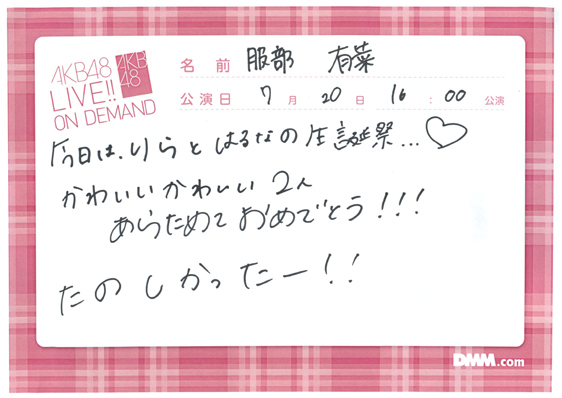 AKB48
LIVE!!
ON DEMAND
AKB
48
名前 服部 有菜
公演日 7月20日 16:00 公演
今日は、りらとはるなの生誕祭...♡
かわいいかわいい2人
あらためておめでとう!!!
たのしかったー!!
DMM.com